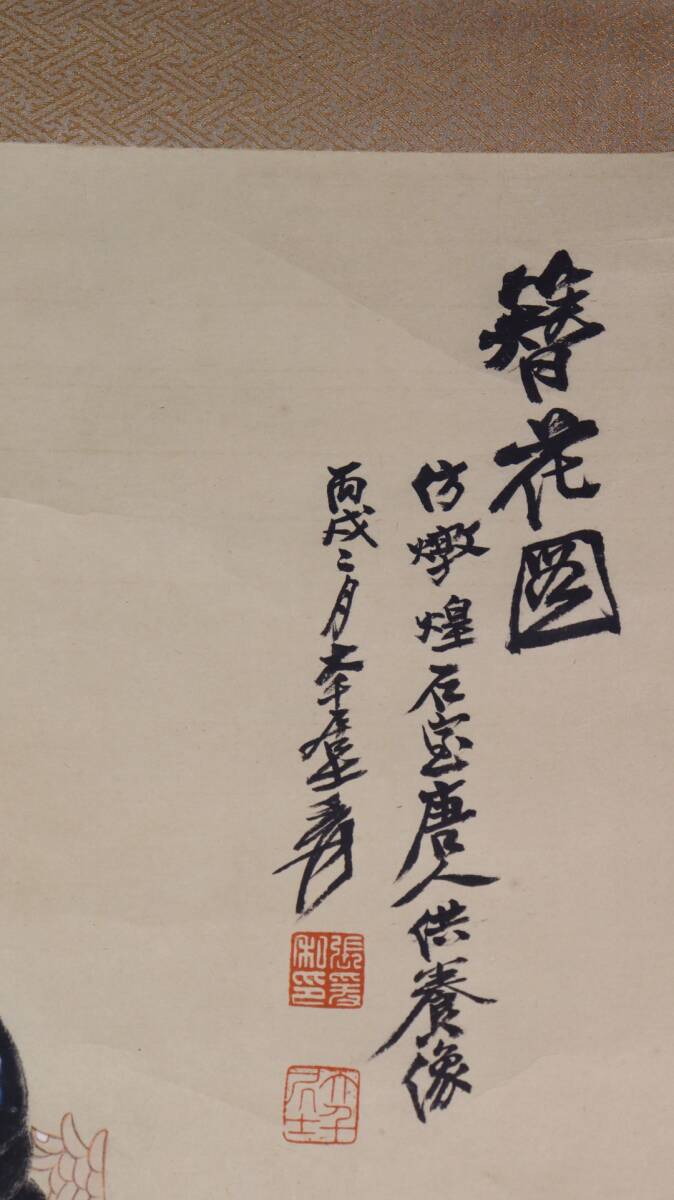 簪花图
仿燉煌石室唐人供養像
丙戌二月大千居士爰
張爰私印
大千居士